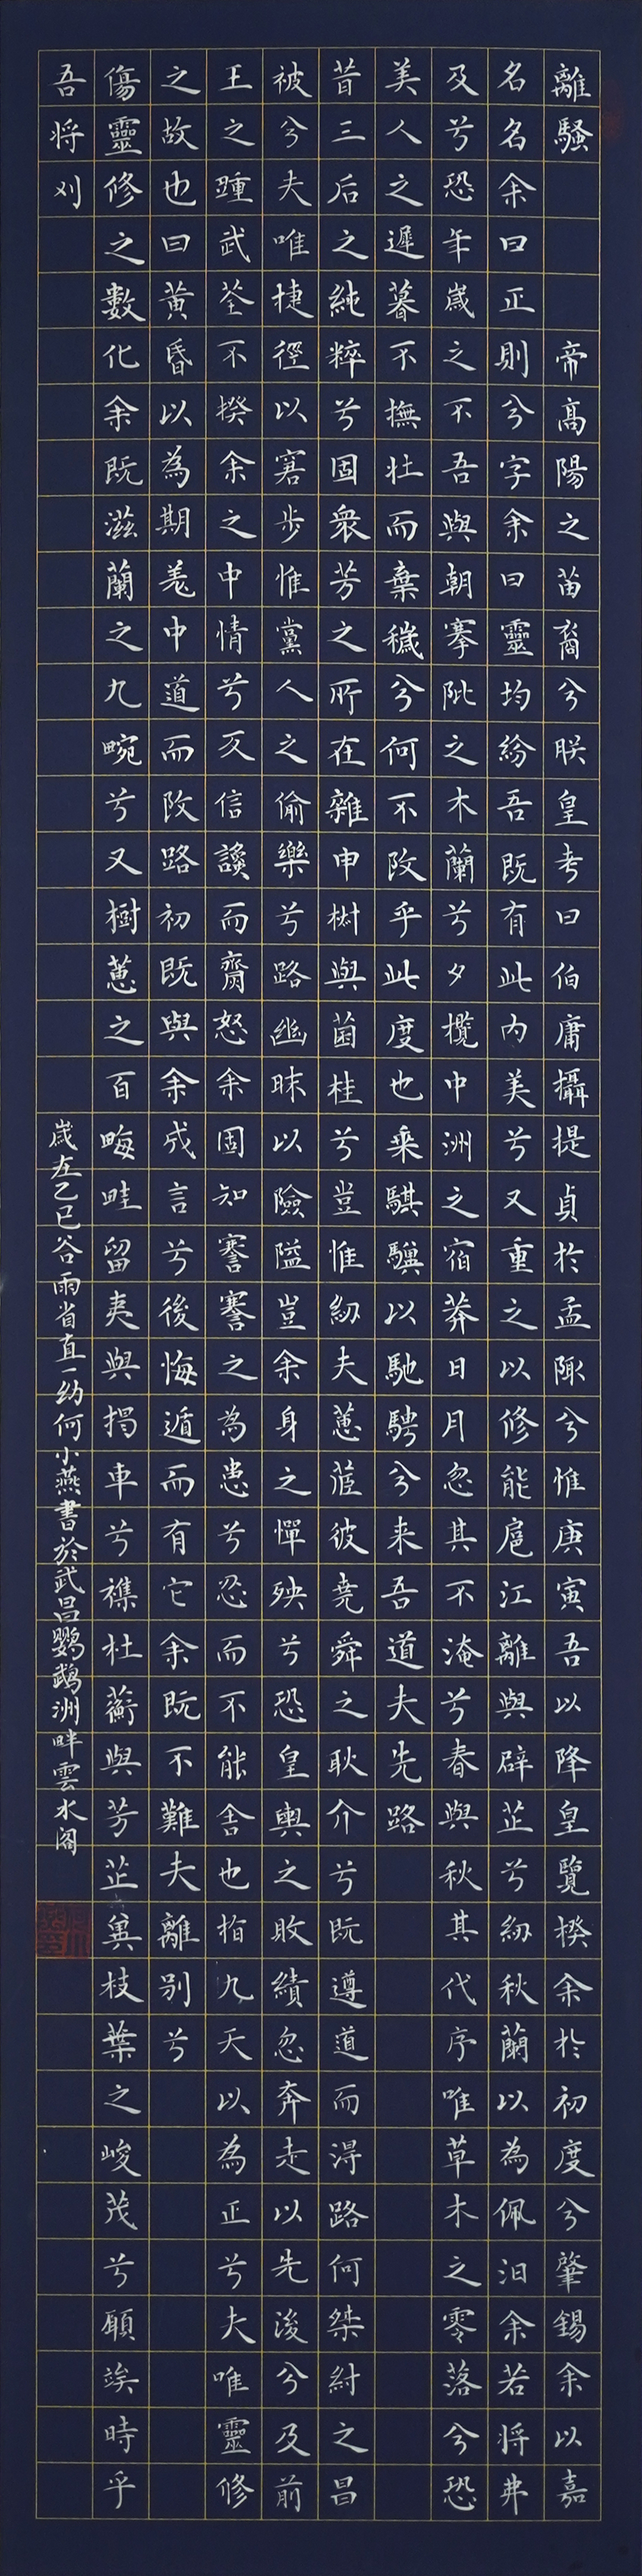 離騷 帝高陽之苗裔兮朕皇考曰伯庸攝提貞於孟陬兮惟庚寅吾以降皇覽揆余於初度兮肇錫余以嘉
名名余曰正則兮字余曰靈均紛吾既有此內美兮又重之以修能扈江離與辟芷兮紉秋蘭以為佩汩余若將弗
及兮恐年歲之不吾與朝搴阰之木蘭兮夕攬中洲之宿莽日月忽其不淹兮春與秋其代序唯草木之零落兮恐
美人之遲暮不撫壯而棄穢兮何不改乎此度也乘騏驥以馳騁兮来吾道夫先路
昔三后之純粹兮固衆芳之所在雜申樹與菌桂兮豈惟紉夫蕙茝彼堯舜之耿介兮既遵道而得路何桀紂之昌
被兮夫唯捷徑以窘步惟黨人之偷樂兮路幽昧以險隘豈余身之憚殃兮恐皇輿之敗績忽奔走以先後兮及前
王之踵武荃不揆余之中情兮反信讒而齌怒余固知謇謇之為患兮忍而不能舍也指九天以為正兮夫唯靈修
之故也曰黃昏以為期羌中道而改路初既與余成言兮後悔遁而有它余既不難夫離別兮
傷靈修之數化余既滋蘭之九畹兮又樹蕙之百畮畦留夷與揭車兮襍杜蘅與芳芷兾枝葉之峻茂兮願竢時乎
吾将刈
歲在乙巳谷雨省直一幼何小燕書於武昌鸚鵡洲畔雲水阁